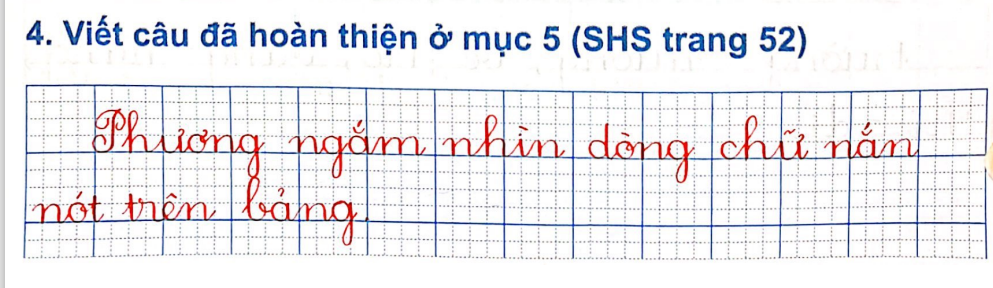 4. Viết câu đã hoàn thiện ở mục 5 (SHS trang 52)
Phương ngắm nhìn dòng chữ nắn
nót trên bảng.